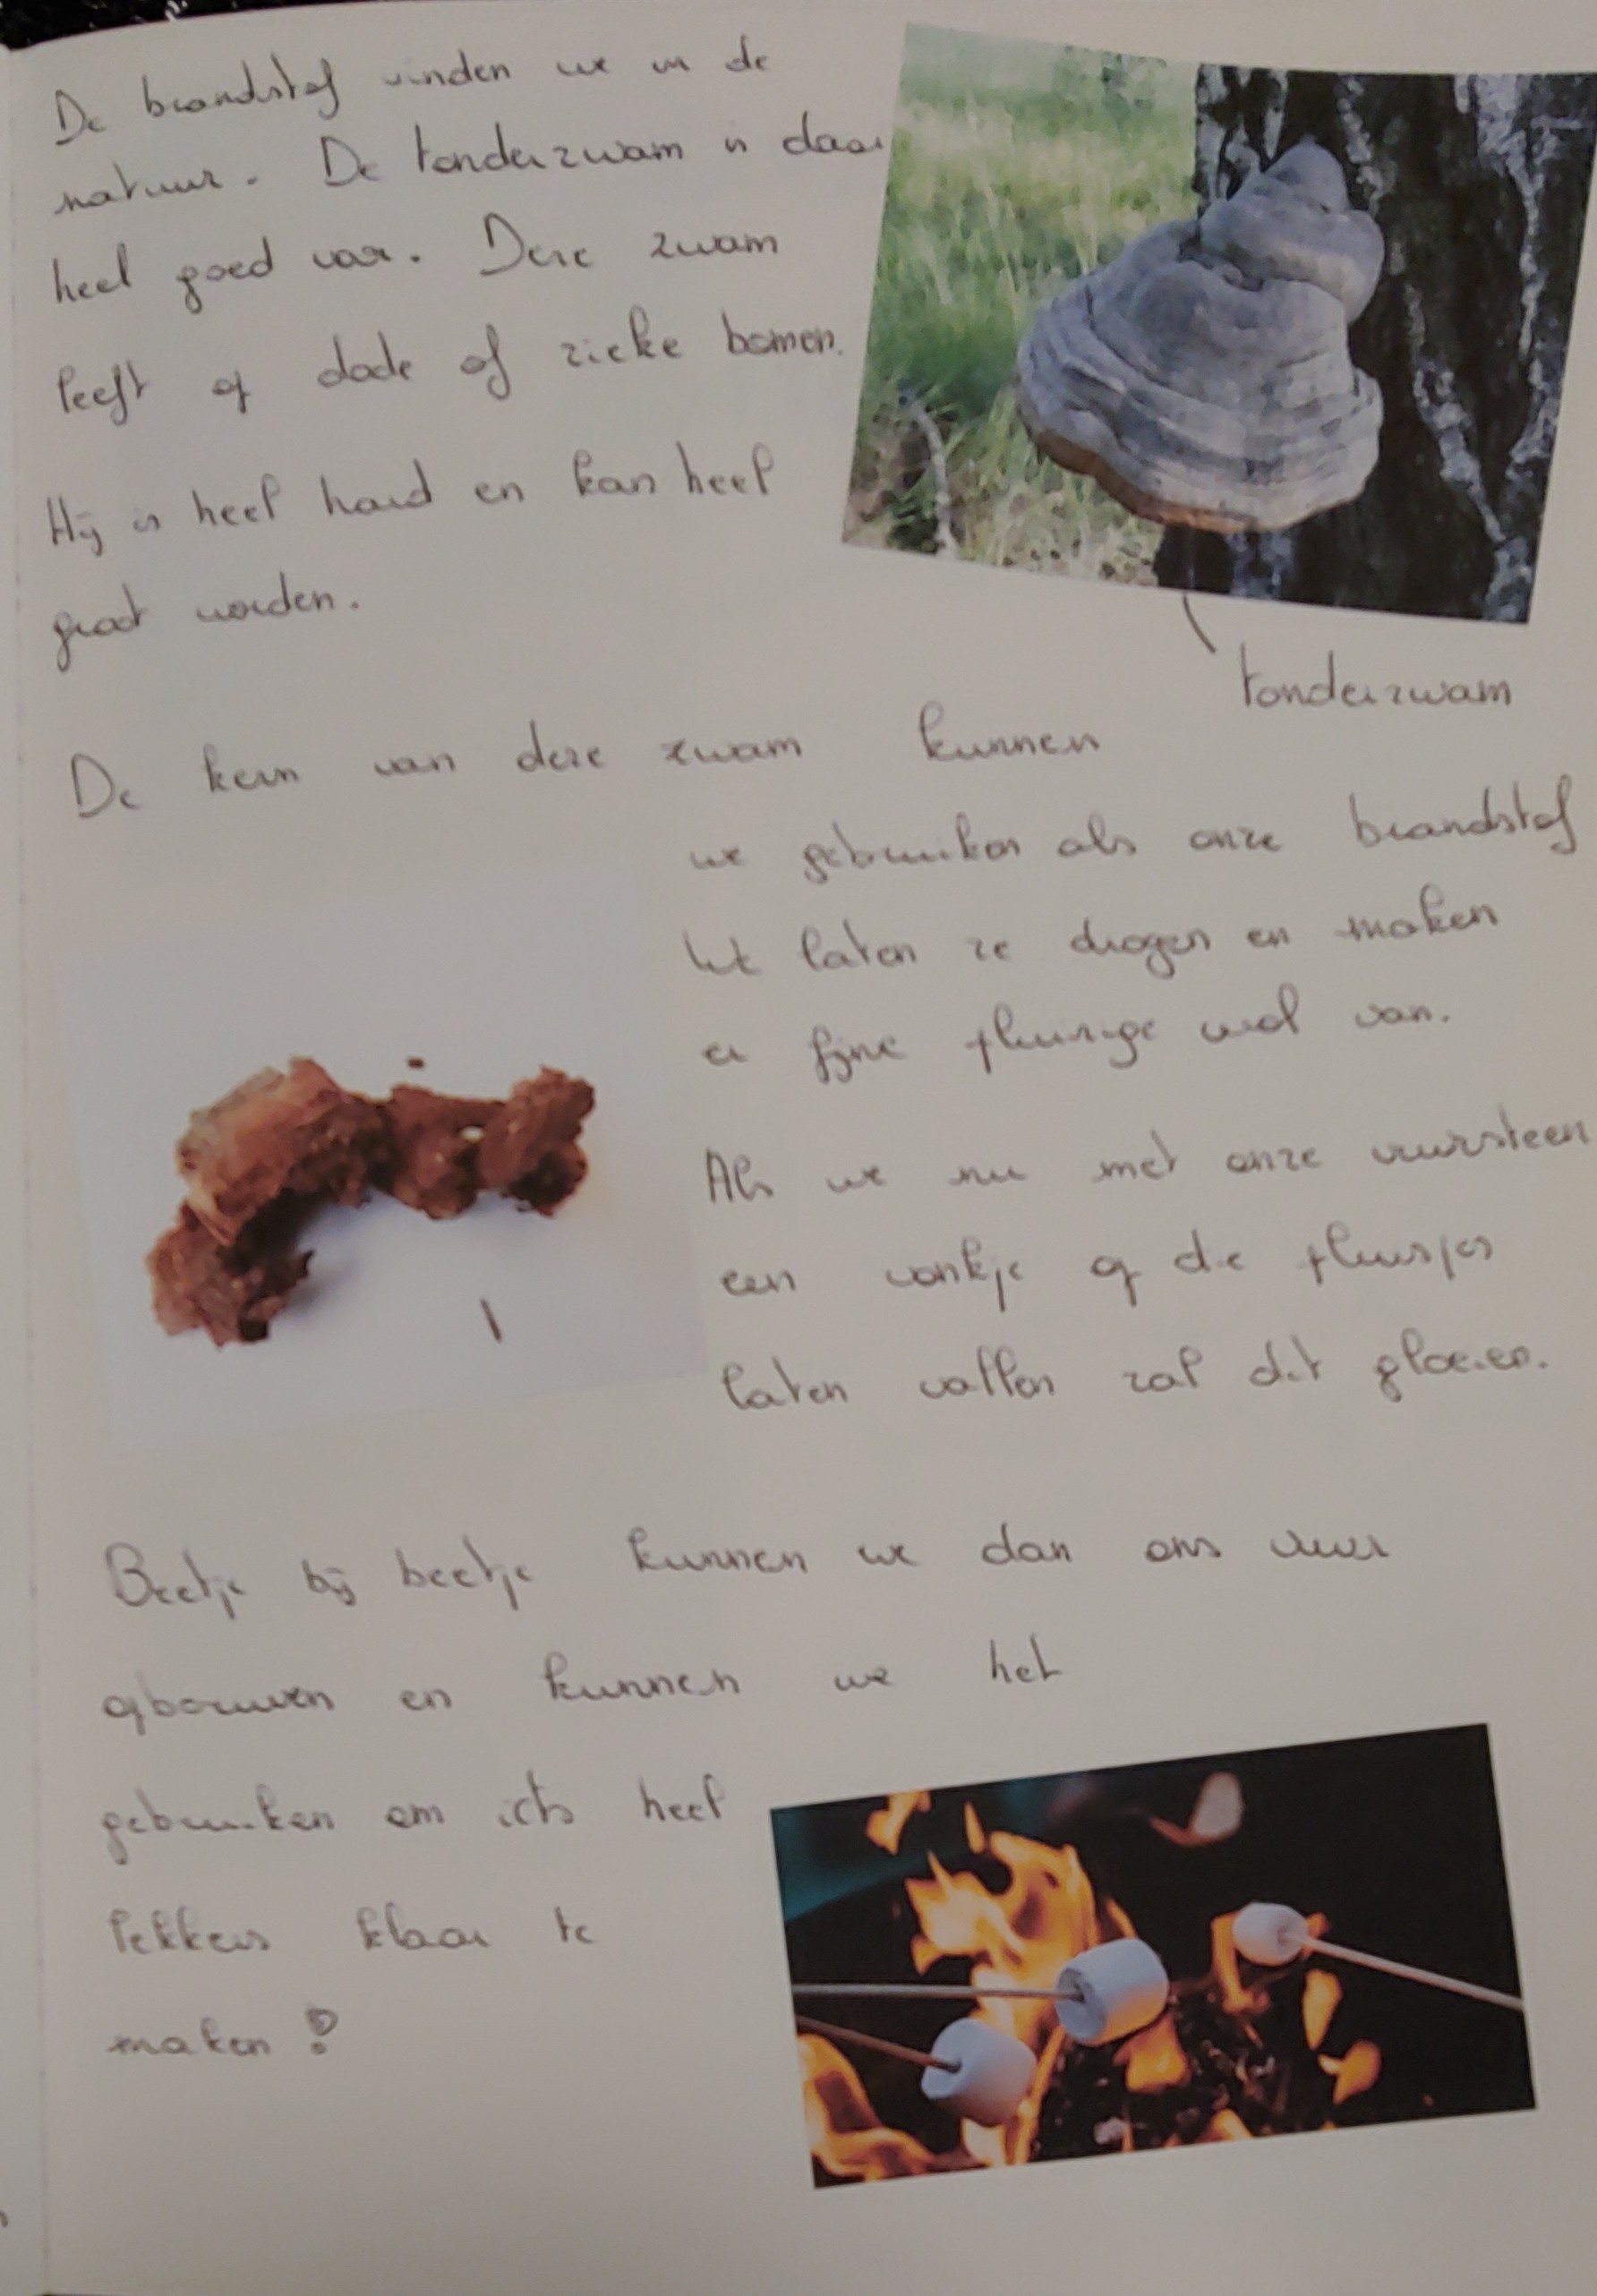 De brandstof vinden we in de
natuur. De tonderzwam is daar
heel goed voor. Deze zwam
leeft op dode of zieke bomen.
Hij is heel hard en kan heel
groot worden.
tonderzwam
De kern van deze zwam kunnen
we gebruiken als onze brandstof
We laten ze drogen en maken
er fijne pluizige wol van.
Als we nu met onze vuursteen
een vonkje op die pluisjes
laten vallen zal dit gloeien.
Beetje bij beetje kunnen we dan ons vuur
opbouwen en kunnen we het
gebruiken om iets heel
lekkers klaar te
maken!